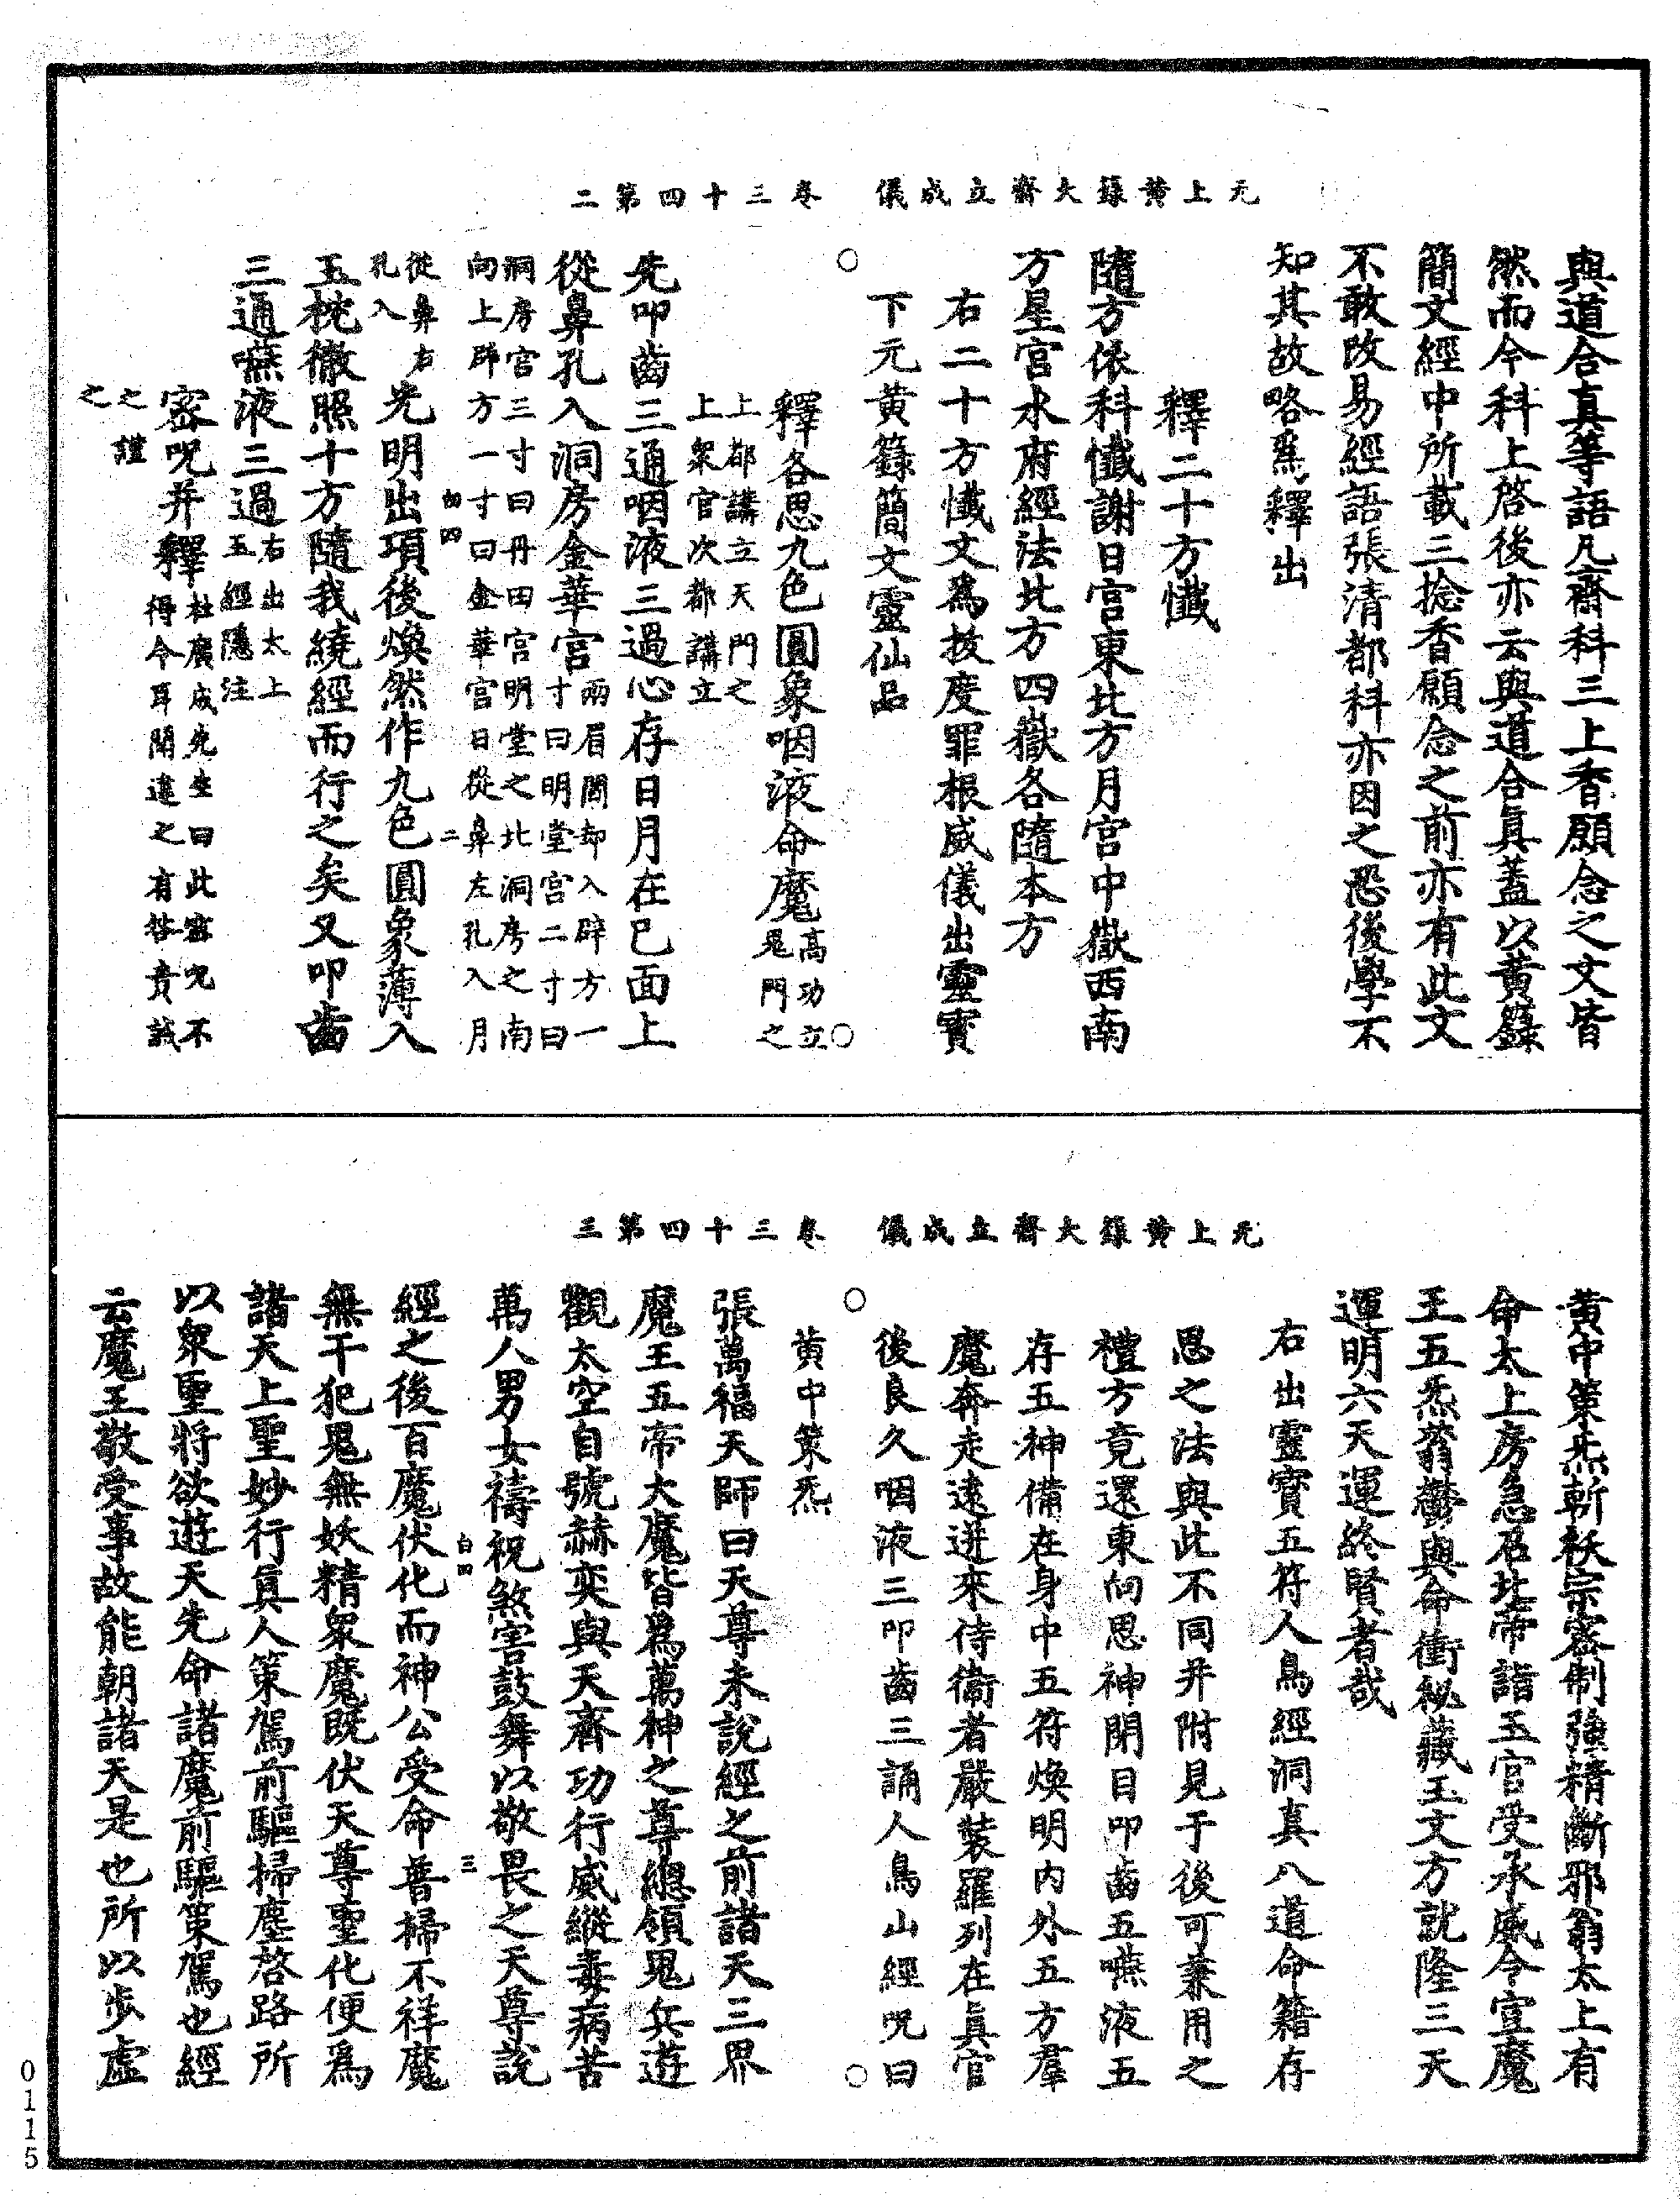 无上黃籙大齋立成儀　卷三十四第二
與道合真等語凡齋科三上香願念之文皆
然而今科上啓後亦云與道合真蓋以黃籙
簡文經中所載三捻香願念之前亦有此文
不敢改易經語張清都科亦因之恐後學不
知其故略爲釋出
釋二十方懺
隨方依科懺謝日宮東北方月宮中嶽西南
方星宮水府經法北方四嶽各隨本方
右二十方懺文爲拔度罪根威儀出靈寶
下元黃籙簡文靈仙品
○
○
釋各思九色圓象咽液命魔高功立
鬼門之
上都講立天門之
上衆官次都講立
先叩齒三通咽液三過心存日月在已面上
從鼻孔入洞房金華宮兩眉間却入辟方一
寸曰明堂宮二寸曰
洞房宮三寸曰丹田宮明堂之北洞房之南
向上辟方一寸曰金華宮日從鼻左孔入月
白四
二
從鼻右
孔入
光明出項後煥然作九色圓象薄入
玉枕徹照十方隨我繞經而行之矣又叩齒
三通嚥液三過右出太上
玉經隱注
密呪并釋杜廣成先生曰此密呪不
得令耳聞違之有咎責誡
之謹
之
无上黃籙大齋立成儀　卷三十四第三
黃中策炁斬祅宗密制強精斷邪翁太上有
命太上房急召北帝詣玉宮受承威令宣魔
王五炁蓊鬱與命衝秘藏玉文方就隆三天
運明六天運終賢者哉
右出靈寶五符人鳥經洞真八道命籍存
思之法與此不同并附見于後可兼用之
禮方竟還東向思神閉目叩齒五嚥液五
存五神備在身中五符煥明內外五方羣
魔奔走遠迸來侍衛者嚴裝羅列在真官
後良久咽液三叩齒三誦人鳥山經呪曰
○
○
黃中策炁
張萬福天師曰天尊未說經之前諸天三界
魔王五帝大魔皆爲萬神之尊總領鬼兵遊
觀太空自號赫奕與天齊功行威縱毒病苦
萬人男女禱祝煞害鼓舞以敬畏之天尊說
白四
三
經之後百魔伏化而神公受命普掃不祥魔
無干犯鬼無妖精衆魔既伏天尊聖化便爲
諸天上聖妙行真人策駕前驅掃塵啓路所
以衆聖將欲遊天先命諸魔前驅策駕也經
云魔王敬受事故能朝諸天是也所以步虛
0115